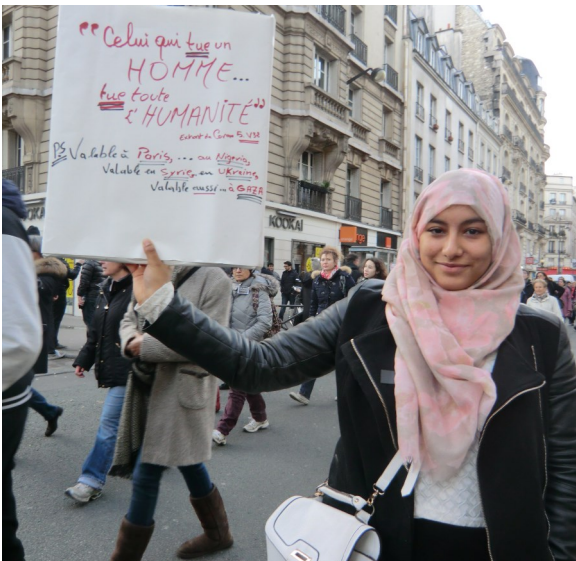 “Celui qui tue un
HOMME...
tue toute
l'HUMANITÉ”
Extrait du Coran
PS Valable à Paris, ... au Nigeria,
Valable en Syrie, en Ukraine,
Valable aussi à GAZA
KOOKAI